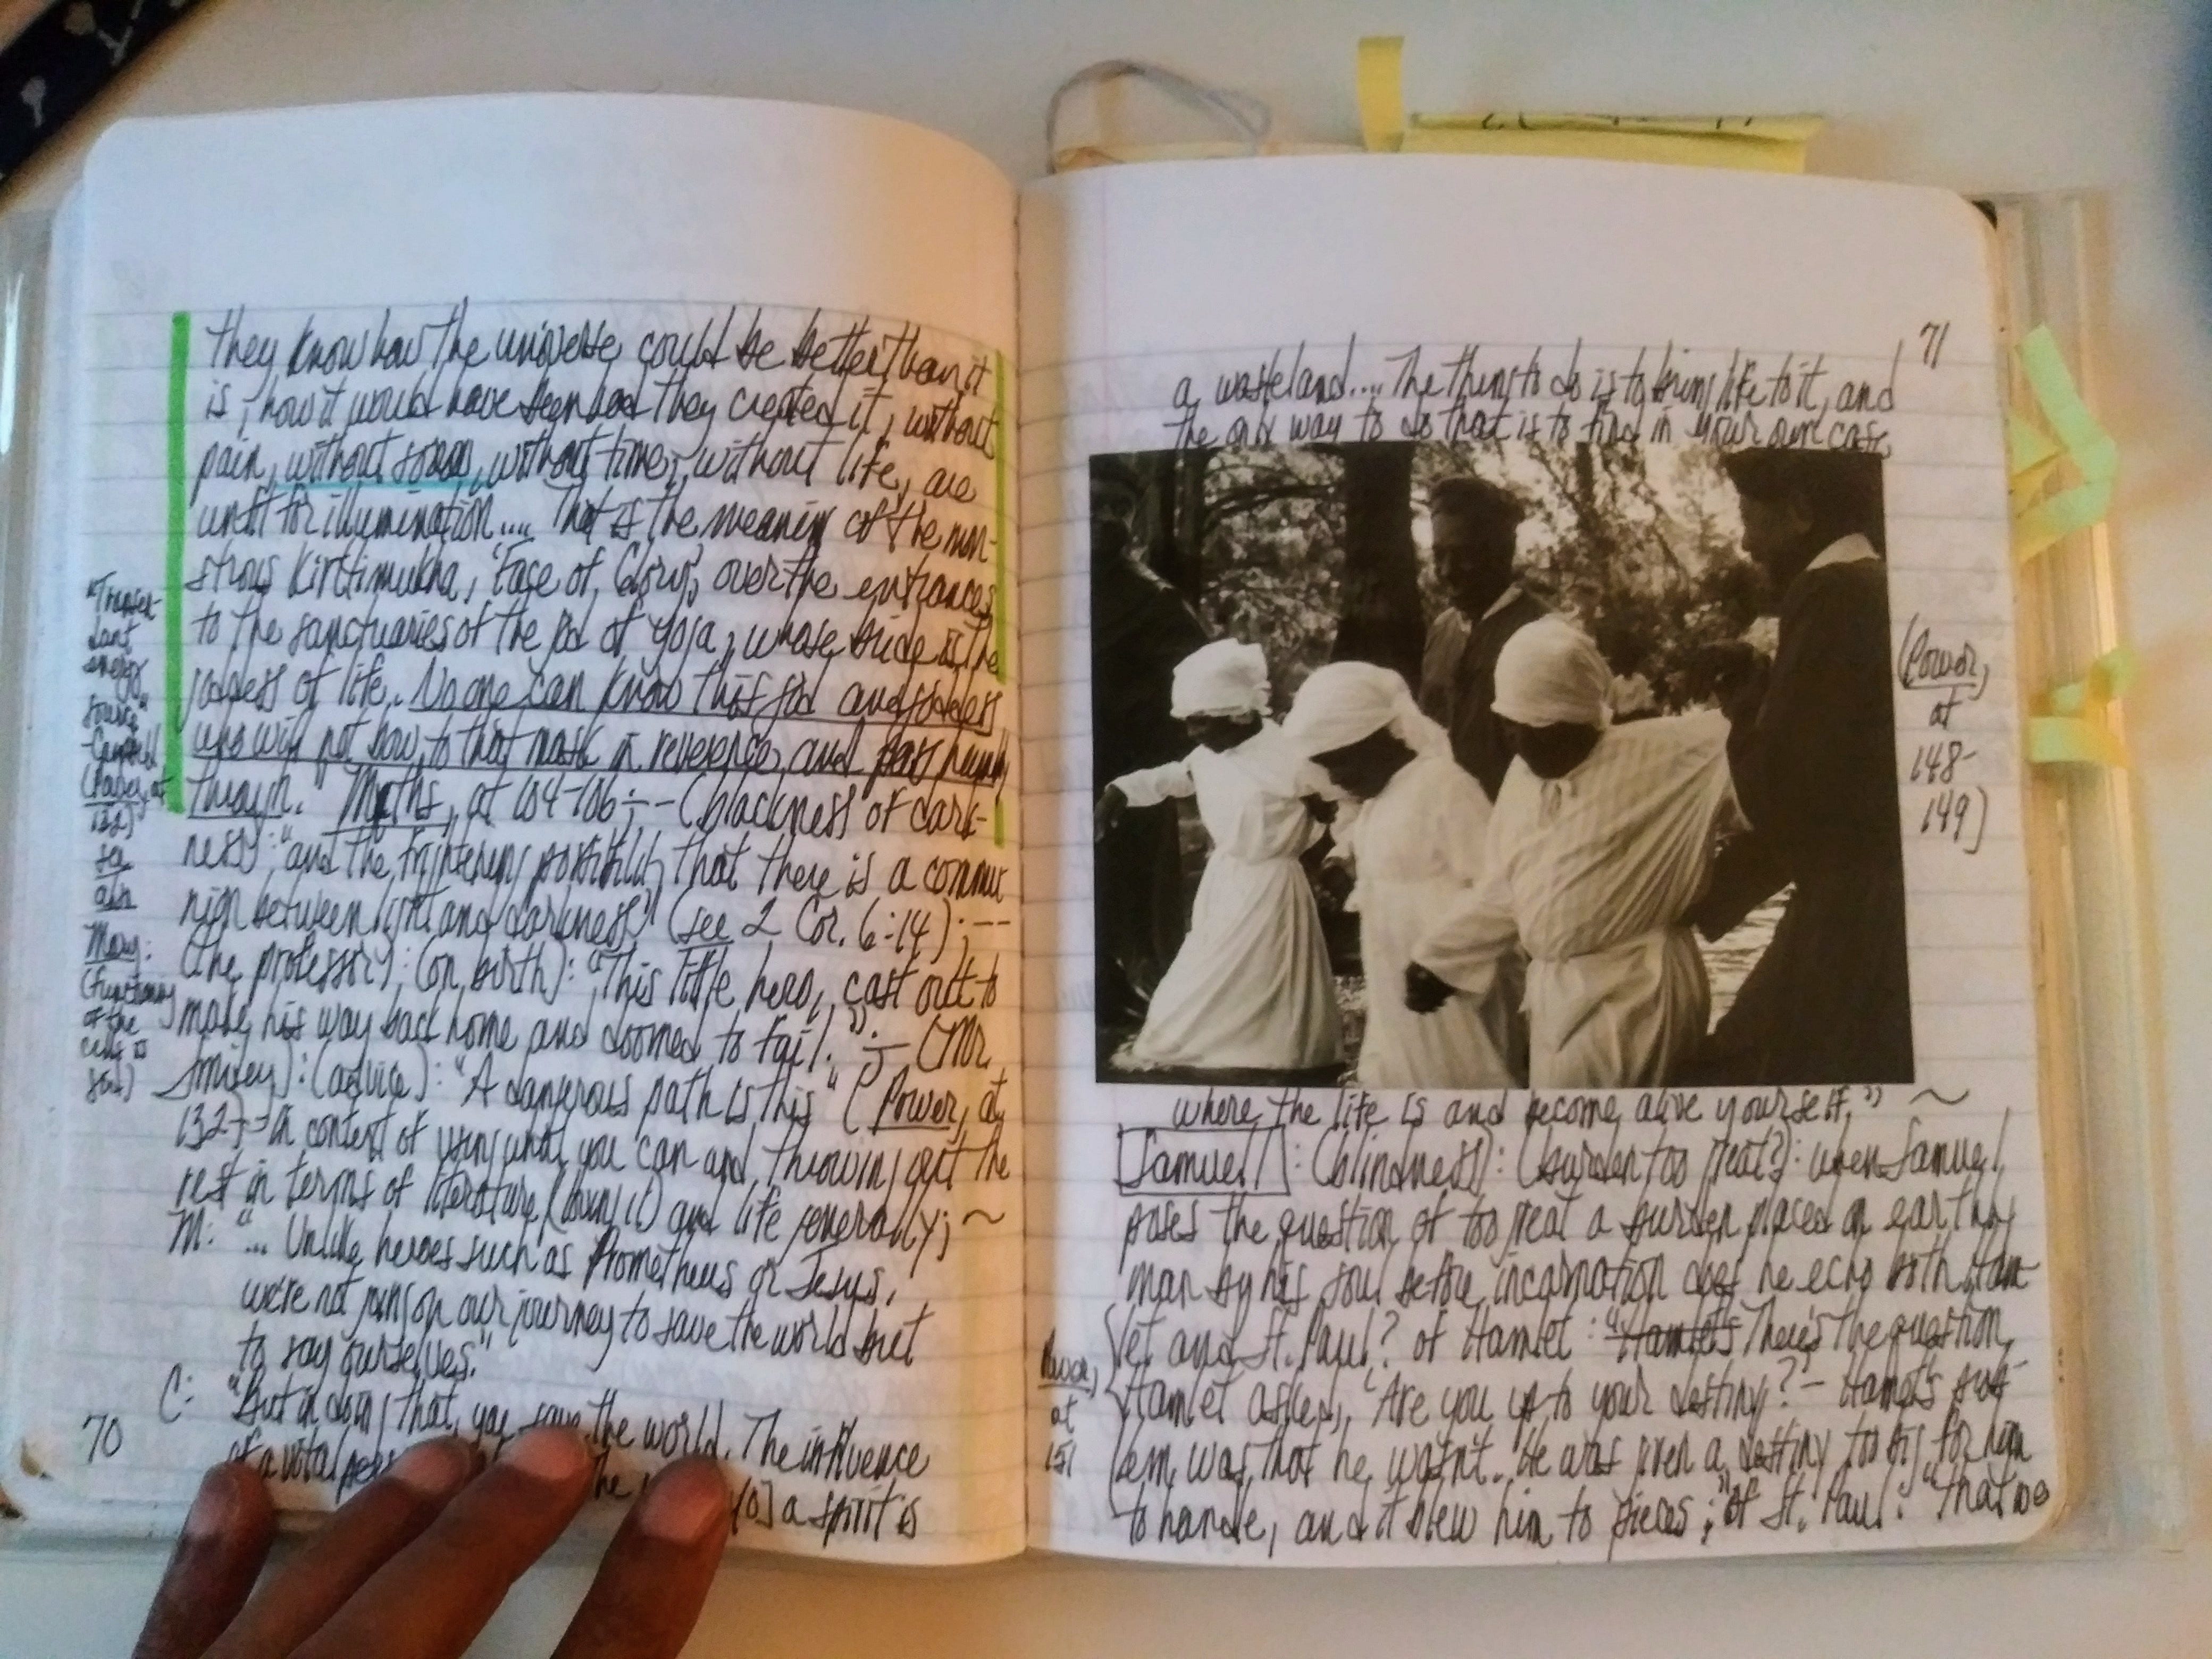 they know how the universe could be better than it
is, how it would have been had they created it, without
pain, without sorrow, without time, without life, are
unfit for illumination.... That is the meaning of the mon-
strous Kirttimukha, 'Face of Glory', over the entrances
to the sanctuaries of the god of yoga, whose bride is the
goddess of life. No one can know this god and goddess
who will not bow to that mask in reverence and pass humbly
through." Myths, at 104-106; -- (blackness of dark-
ness): "and the frightening possibility that there is a commu
nion between light and darkness" (see 2 Cor. 6:14); --
(the professor): (on birth): "This little hero, cast out to
make his way back home and doomed to fail."; -- (Mr.
Smiley): (advice): "A dangerous path is this" (Power, at
132) -- in context of using what you can and throwing out the
rest in terms of literature (loving it) and life generally; ~
M: "... Unlike heroes such as Prometheus or Jesus,
we're not going on our journey to save the world but
to say ourselves."
C: "But in doing that, you save the world. The influence
of a vital
the a spirit is
70
"Transcen-
dant
energy
source"
-Campbell
(Power, at
132)
see
also
Mary:
(functioning
of the
cells is
God)
71
a wasteland.... The thing to do is to bring life to it, and
the only way to do that is to find in your own case
(Power,
at
148-
149)
where the life is and become alive yourself." ~
Samuel: (blindness): (burden too great?): when Samuel
poses the question of too great a burden placed on earthly
man by his soul before incarnation does he echo both Ham-
let and St. Paul? of Hamlet: "Hamlet's There's the question,
Hamlet asked, 'Are you up to your destiny?' - Hamlet's prob-
lem was that he wasn't. He was given a destiny too big for him
to handle, and it blew him to pieces;" of St. Paul: "That no
Power,
at
151